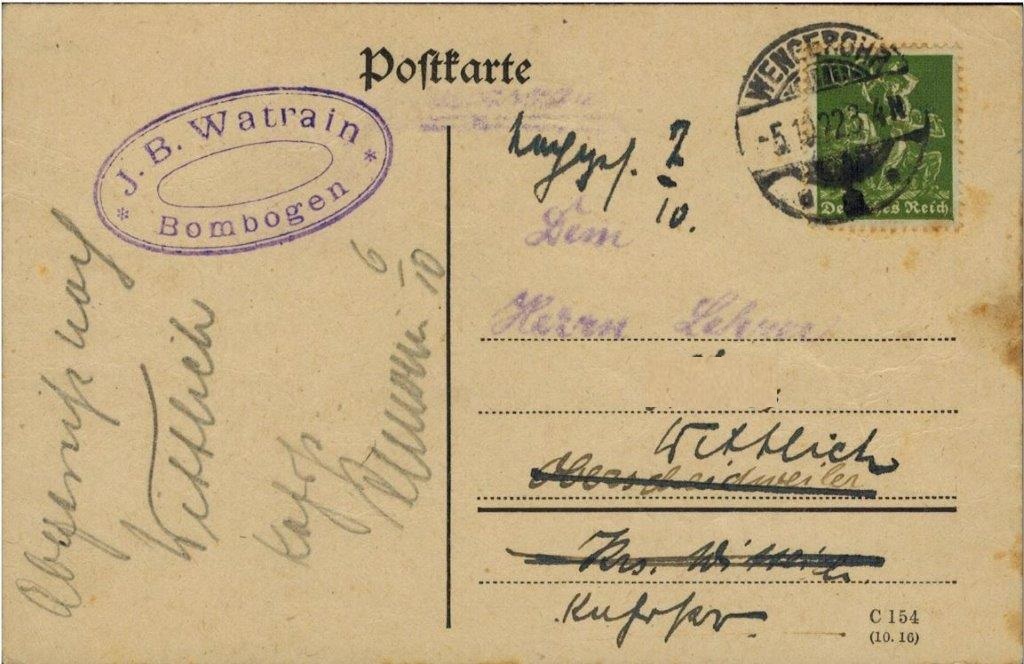 Postkarte
* J. B. Watrain *
Bombogen
WENGEROHR
-5.10.22 3-4N
Deutsches Reich
7
10.
Dem
Herrn Lehrer
Wittlich
Oberscheidweiler
Krs. Wittlich
Abgereist nach
Wittlich
6
10
C 154
(10. 16)